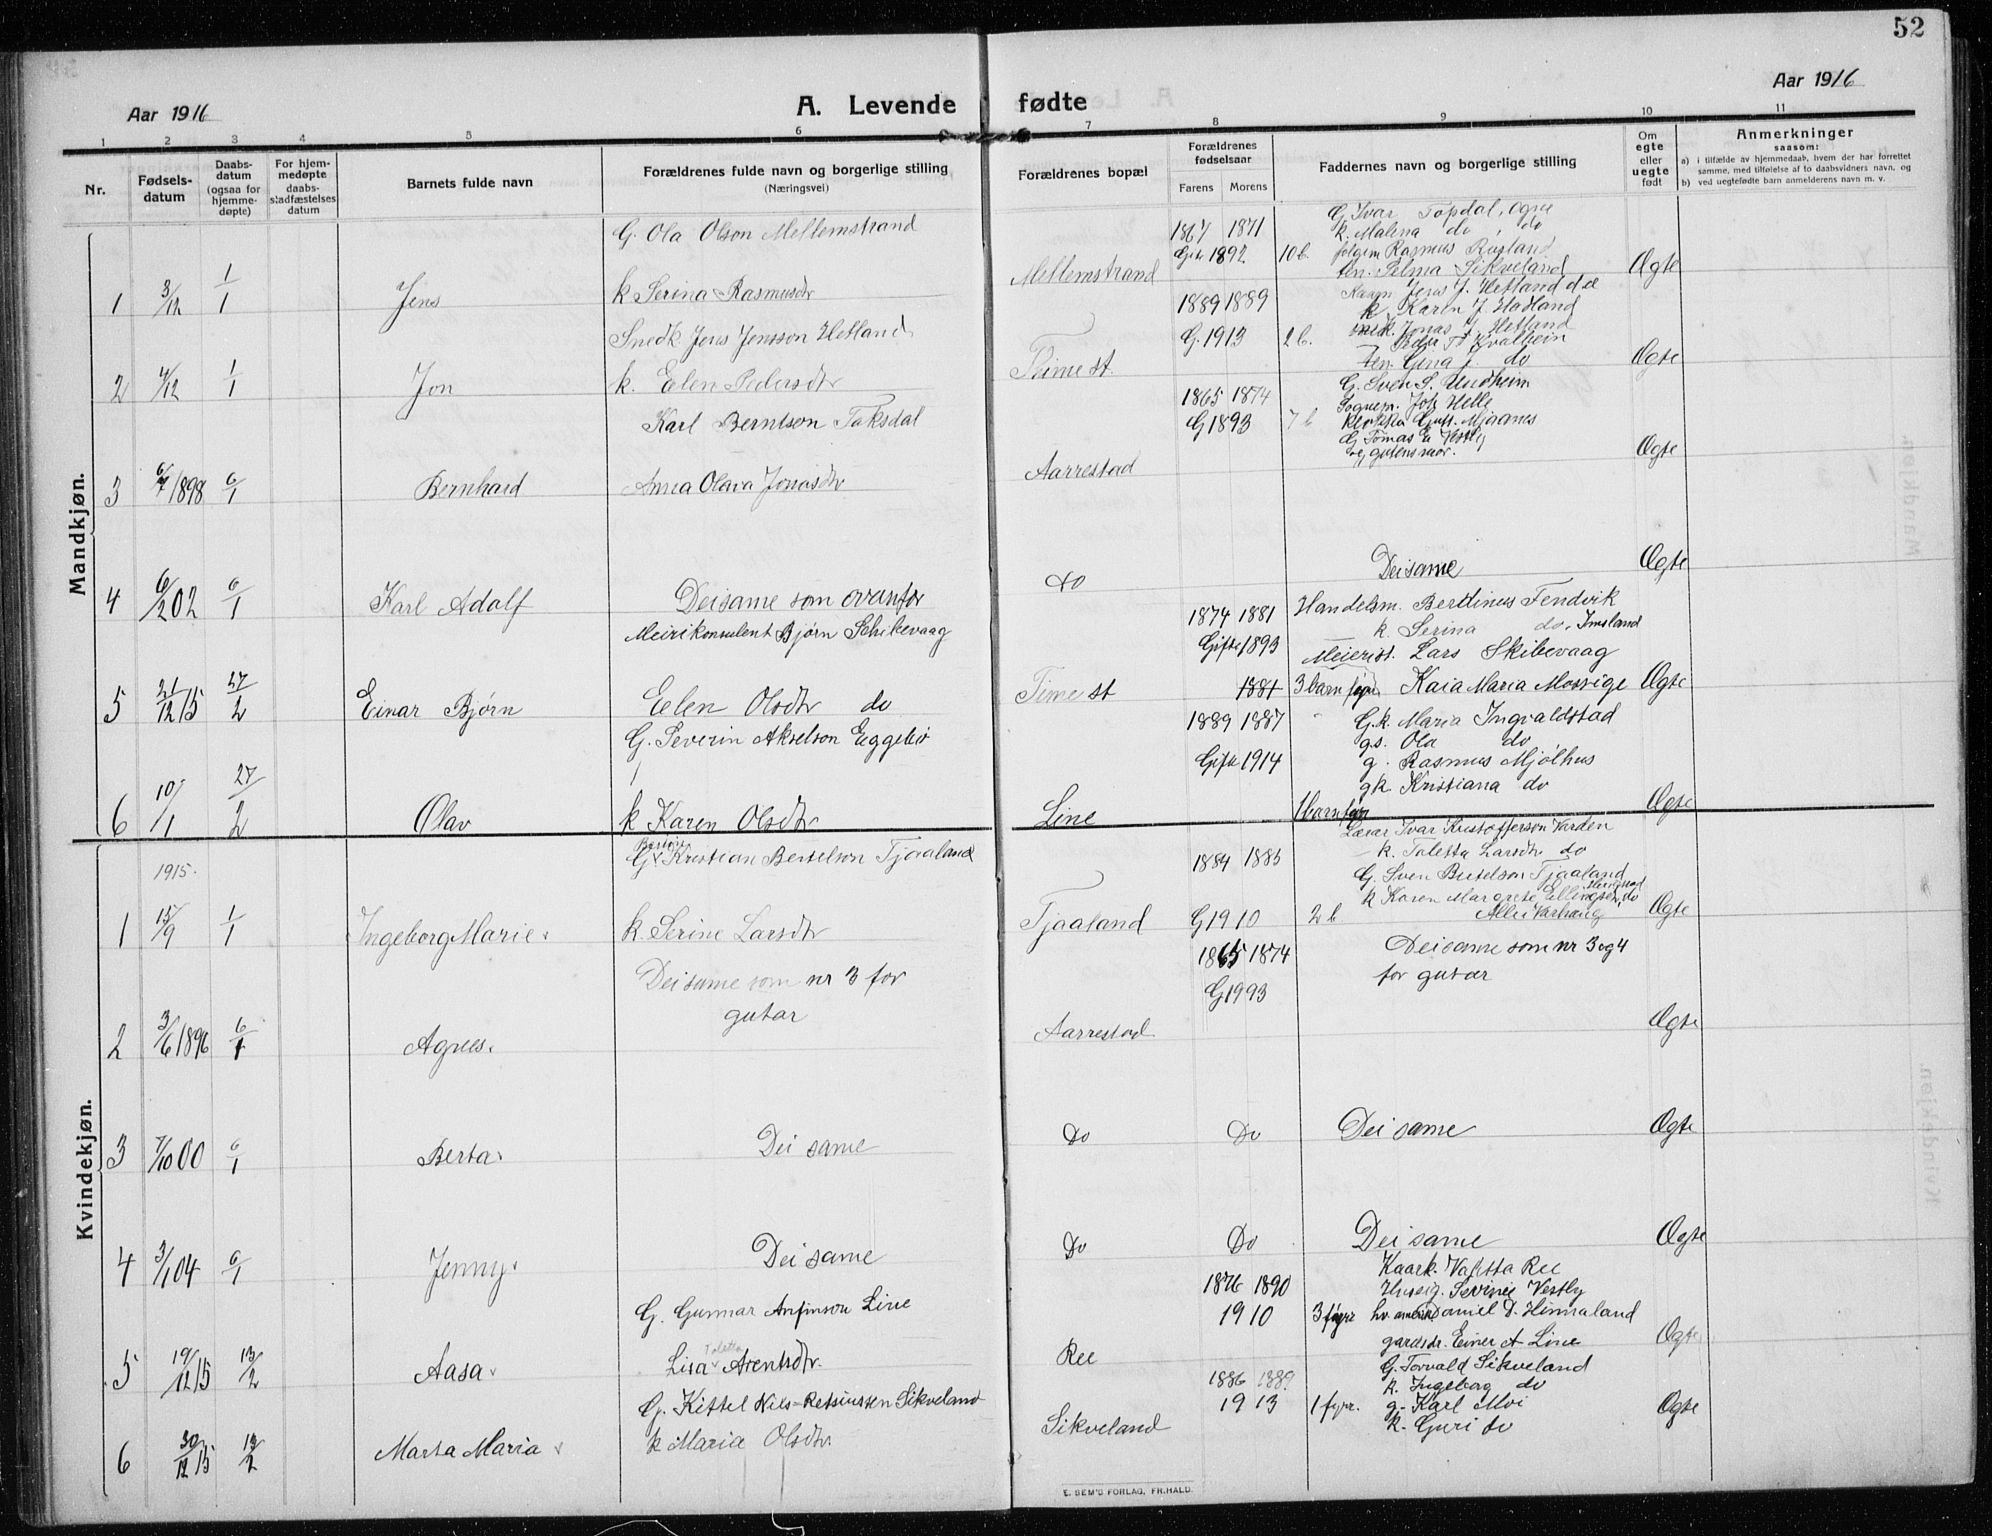 52
Aar 1916
A. Levende fødte
Aar 1916
1 2 3 4 5 6 7 8 9 10 11
Nr.
Fødselsdatum
Daabsdatum (ogsaa for hjemmedøpte)
For hjemmedøpte daabsstadfæstelses datum
Barnets fulde navn
Forældrenes fulde navn og borgerlige stilling (Næringsvei)
Forældrenes bopæl
Forældrenes fødselsaar
Farens Morens
Faddernes navn og borgerlige stilling
Om egte eller uegte født
Anmerkninger
saasom:
a) i tilfælde av hjemmedaab, hvem der har forrettet samme, med tilføielse af to daabsvidners navn, og
b) ved uegtefødte barn anmelderens navn m. v.
Mandkjøn.
G. Ola Olson Mellemstrand
1 3/12 1/1 Jens k Serina Rasmusdtr Mellemstrand
1867 1871
Gift 1892 10 b.
G Ivar Topdal, Ogne
k. Malena do, do
Rasmus
ten. Selma Sikveland
Ægte
Snedk. Jens Jensson Hetland
2 4/12 1/1 Jon k. Eelen Pedersdtr Time st.
1889 1889
G. 1913 2 b.
Jens J. Hetland
k. Karen J. Hadland
Jonas J. Hetland
Peder T. Kvalheim
ten. Gina J. do
Ægte
Karl Berntson Taksdal
3 1898 6/1 Bernhard Anna Olava Jonasdtr Aarrestad
1865 1874
G 1893 7 b
G. Sven S. Undheim
Sognepr. Helle
Mjaanes
G Tomas E Vestly
og gutens mor.
Ægte
4 02 6/1 Karl Adolf Deisame som ovanfor do Deisame Ægte
Meirikonsulent Bjørn Schibevaag
5 21/12 15 27/2 Einar Bjørn Eelen Olsdtr do Time st
1874 1881
Gifte 1893
1881 3 barn før
Handelsm. Berttinus Fendvik
k. Serina do, Imsland
Meierist. Lars Skibevaag
Kaia Maria Mossige
Ægte
G. Severin Akselson Eggebø
6 10/1 27/2 Olav k Karen Olsdtr Line
1889 1887
Gift 1914
1 barn før
G.k. Maria Ingvaldstad
g.s. Ola do
g. Rasmus Mjølhus
gk Kristiana do
Ægte
Kvindekjøn.
G. Kristian Berselson Tjaaland
1915.
1 15/9 1/1 Ingeborg Marie k Serine Larsdtr Tjaaland
1884 1885
G 1910 2 b
Lærar Ivar Kristofferson Varden
k. Taletta Larsdtr do
G. Sven Bertelson Tjaaland
k Karen Margrete Ellingsen, do
Alle i Varhaug
Ægte
2 3/6 1896 6/1 Agnes. Deisame som nr 3 for
gutar
Aarrestad
1865 1874
G 1993
Deisame som nr 3 og 4
for gutar
Ægte
3 7/10 00 6/1 Berta Dei same Do Do Dei same Ægte
4 3/1 04 6/1 Jenny Dei same Do Do Dei same Ægte
G. Gunnar Anfinson Line
5 19/12 15 13/2 Aasa Lisa Taletta Arentsdtr. Ree
1876 1890
1910 3 før
Kaark. Valetta Ree
Huseig. Sevinie Vestly
Daniel D. Hinnaland
gardsdr. Einer A Line
Ægte
G. Kittel Nils-Retsiussen Sikveland
6 30/12 15 13/2 Marta Maria k Maria Olsdtr. Sikveland
1886 1889
1913 1 før.
G. Torvald Sikveland
k. Ingeborg do
g. Karl Moi
k. Guri do
Ægte
E. SEM'S FORLAG, FR.HALD.